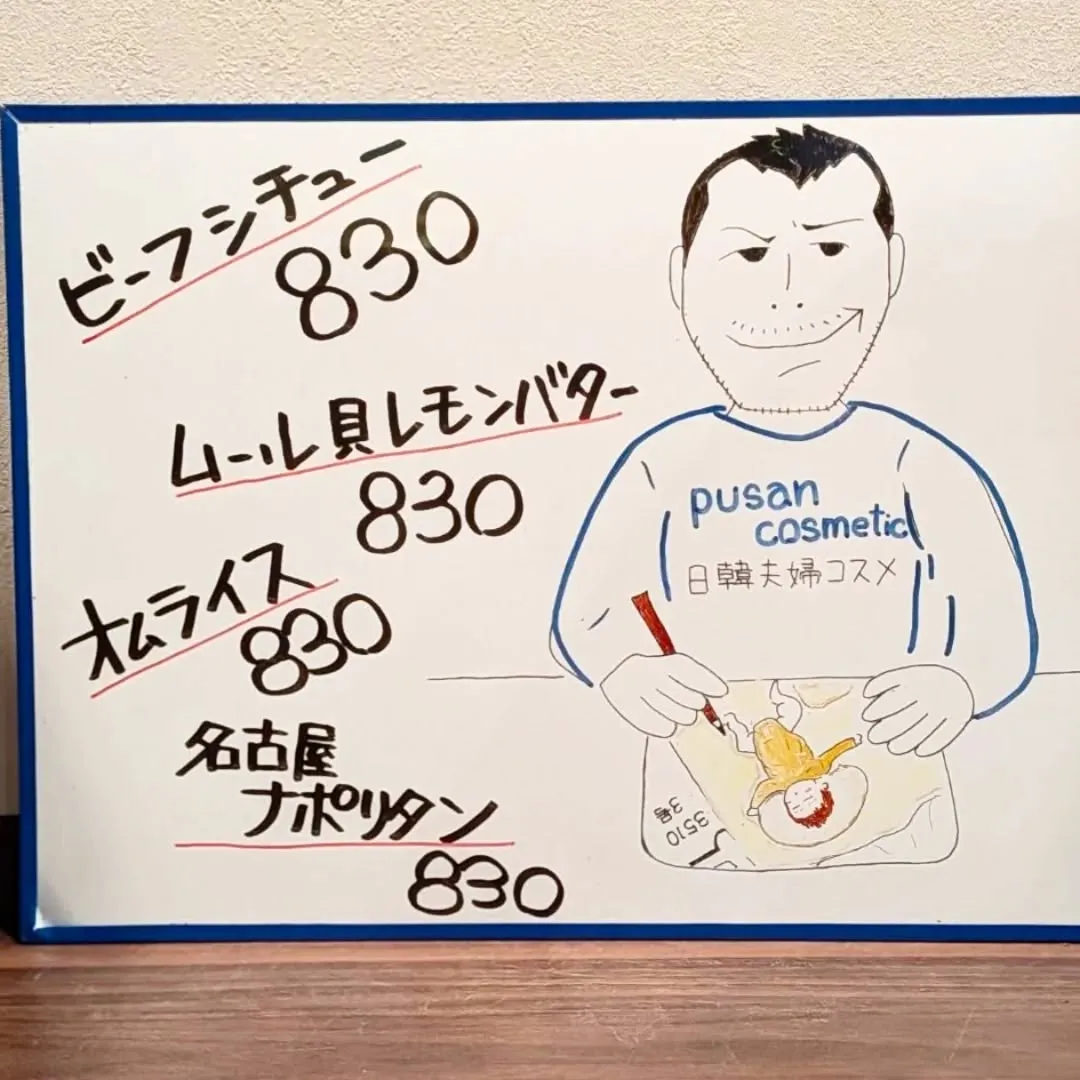 ビーフシチュー
830
ムール貝レモンバター
830
オムライス
830
名古屋
ナポリタン
830
pusan
cosmetic
日韓夫婦コスメ
3510
3号